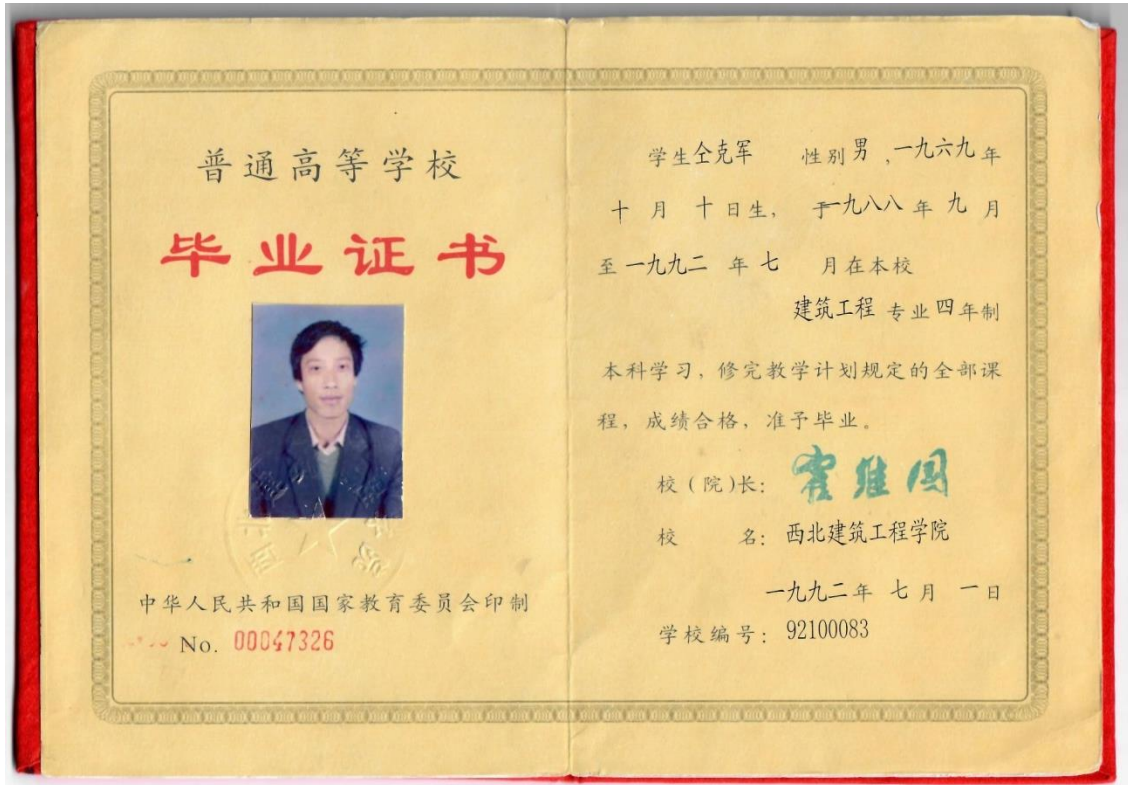 普通高等学校
毕业证书
中华人民共和国国家教育委员会印制
No. 00047326
学生仝克军 性别男,一九六九年
十月十日生, 于一九八八年九月
至一九九二年七 月在本校
建筑工程专业四年制
本科学习,修完教学计划规定的全部课
程,成绩合格,准予毕业。
校(院)长: 霍维国
校 名: 西北建筑工程学院
一九九二年七月一日
学校编号: 92100083